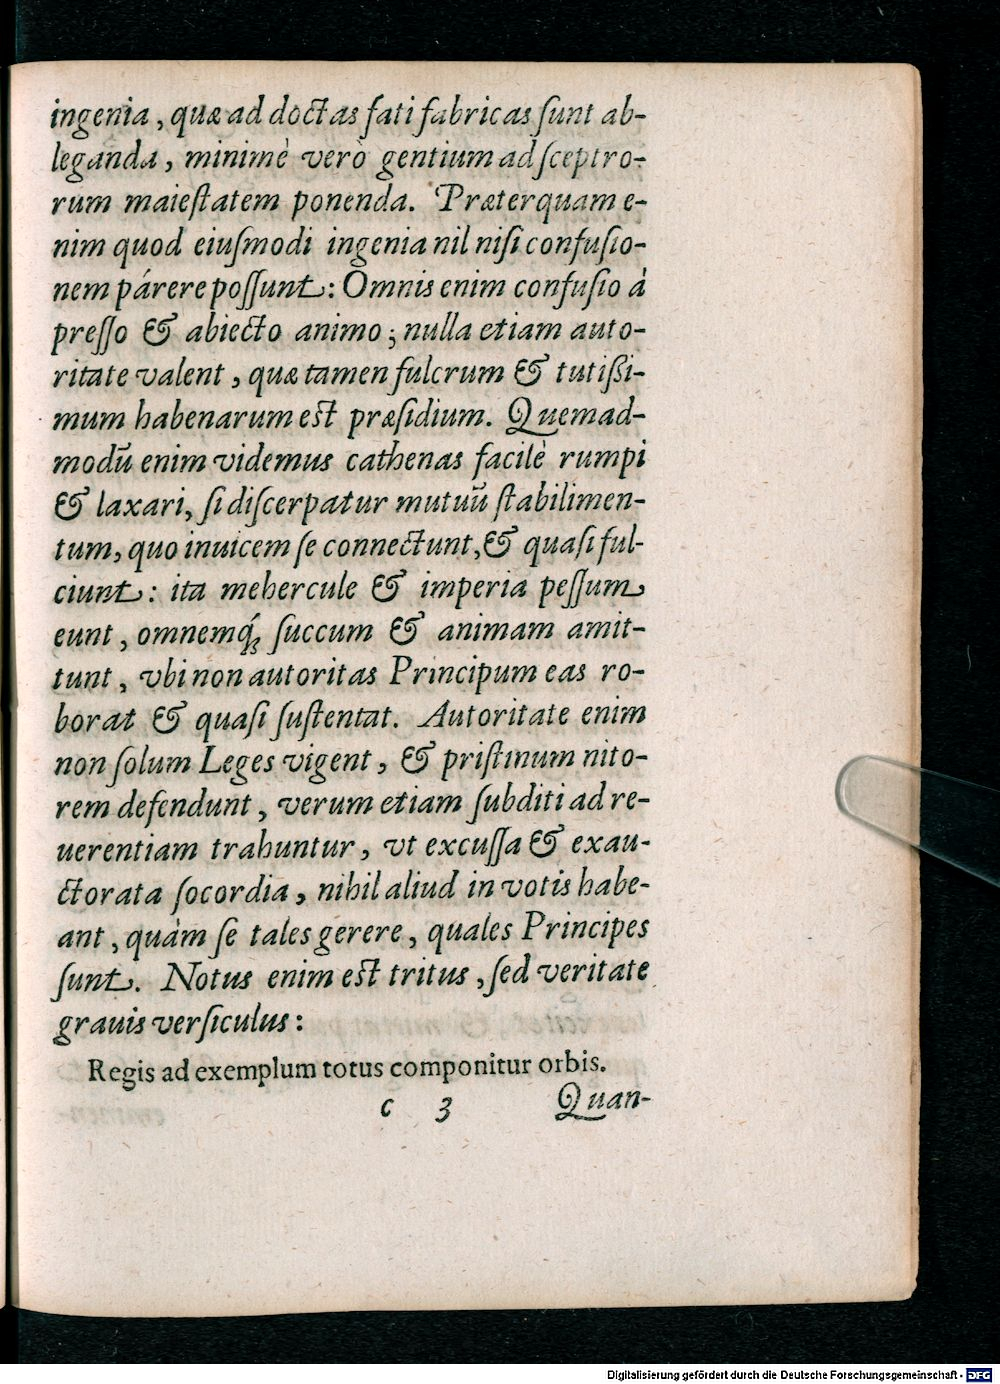 ingenia, quæ ad doctas fati fabricas ſunt ab-
leganda, minimè verò gentium ad ſceptro-
rum maieſtatem ponenda. Præterquam e-
nim quod eiuſmodi ingenia nil niſi confuſio-
nem párere poſſunt: Omnis enim confuſio à
preſſo & abiecto animo; nulla etiam auto-
ritate valent, quæ tamen fulcrum & tutißi-
mum habenarum est præſidium. Quemad-
modū enim videmus cathenas facilè rumpi
& laxari, ſi diſcerpatur mutuū ſtabilimen-
tum, quo inuicem ſe connectunt, & quaſi ful-
ciunt: ita mehercule & imperia peſſum
eunt, omnemq́ꝫ ſuccum & animam amit-
tunt, vbi non autoritas Principum eas ro-
borat & quaſi ſuſtentat. Autoritate enim
non ſolum Leges vigent, & priſtinum nito-
rem defendunt, verum etiam ſubditi ad re-
uerentiam trahuntur, vt excuſſa & exau-
ctorata ſocordia, nihil aliud in votis habe-
ant, quàm ſe tales gerere, quales Principes
ſunt. Notus enim est tritus, ſed veritate
grauis verſiculus:
Regis ad exemplum totus componitur orbis.
c 3 Quan-
Digitalisierung gefördert durch die Deutsche Forschungsgemeinschaft - DFG